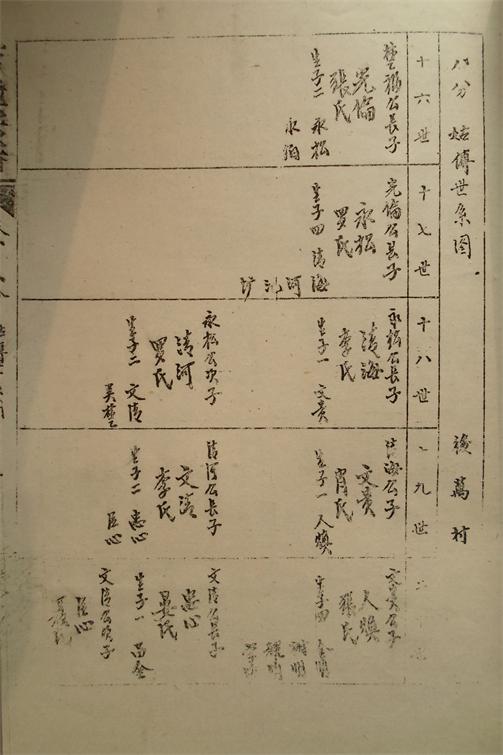 八分 姑傳世系图 後萬村
十六世
楚孫公長子
完倫
張氏
生子二 永松
永柏
十七世
完倫公長子
永松
罗氏
生子四 清海
河
十八世
永松公長子
清海
李氏
生子一 文贵
永松公次子
清河
罗氏
生子二 文清
九世
清海公子
文贵
肖氏
生子一 人焕
清河公長子
文清
李氏
生子二 惠心
臣心
文贵公子
人焕
張氏
生子四
文清公長子
惠心
晏氏
生子一 昌全
文清公次子
臣心